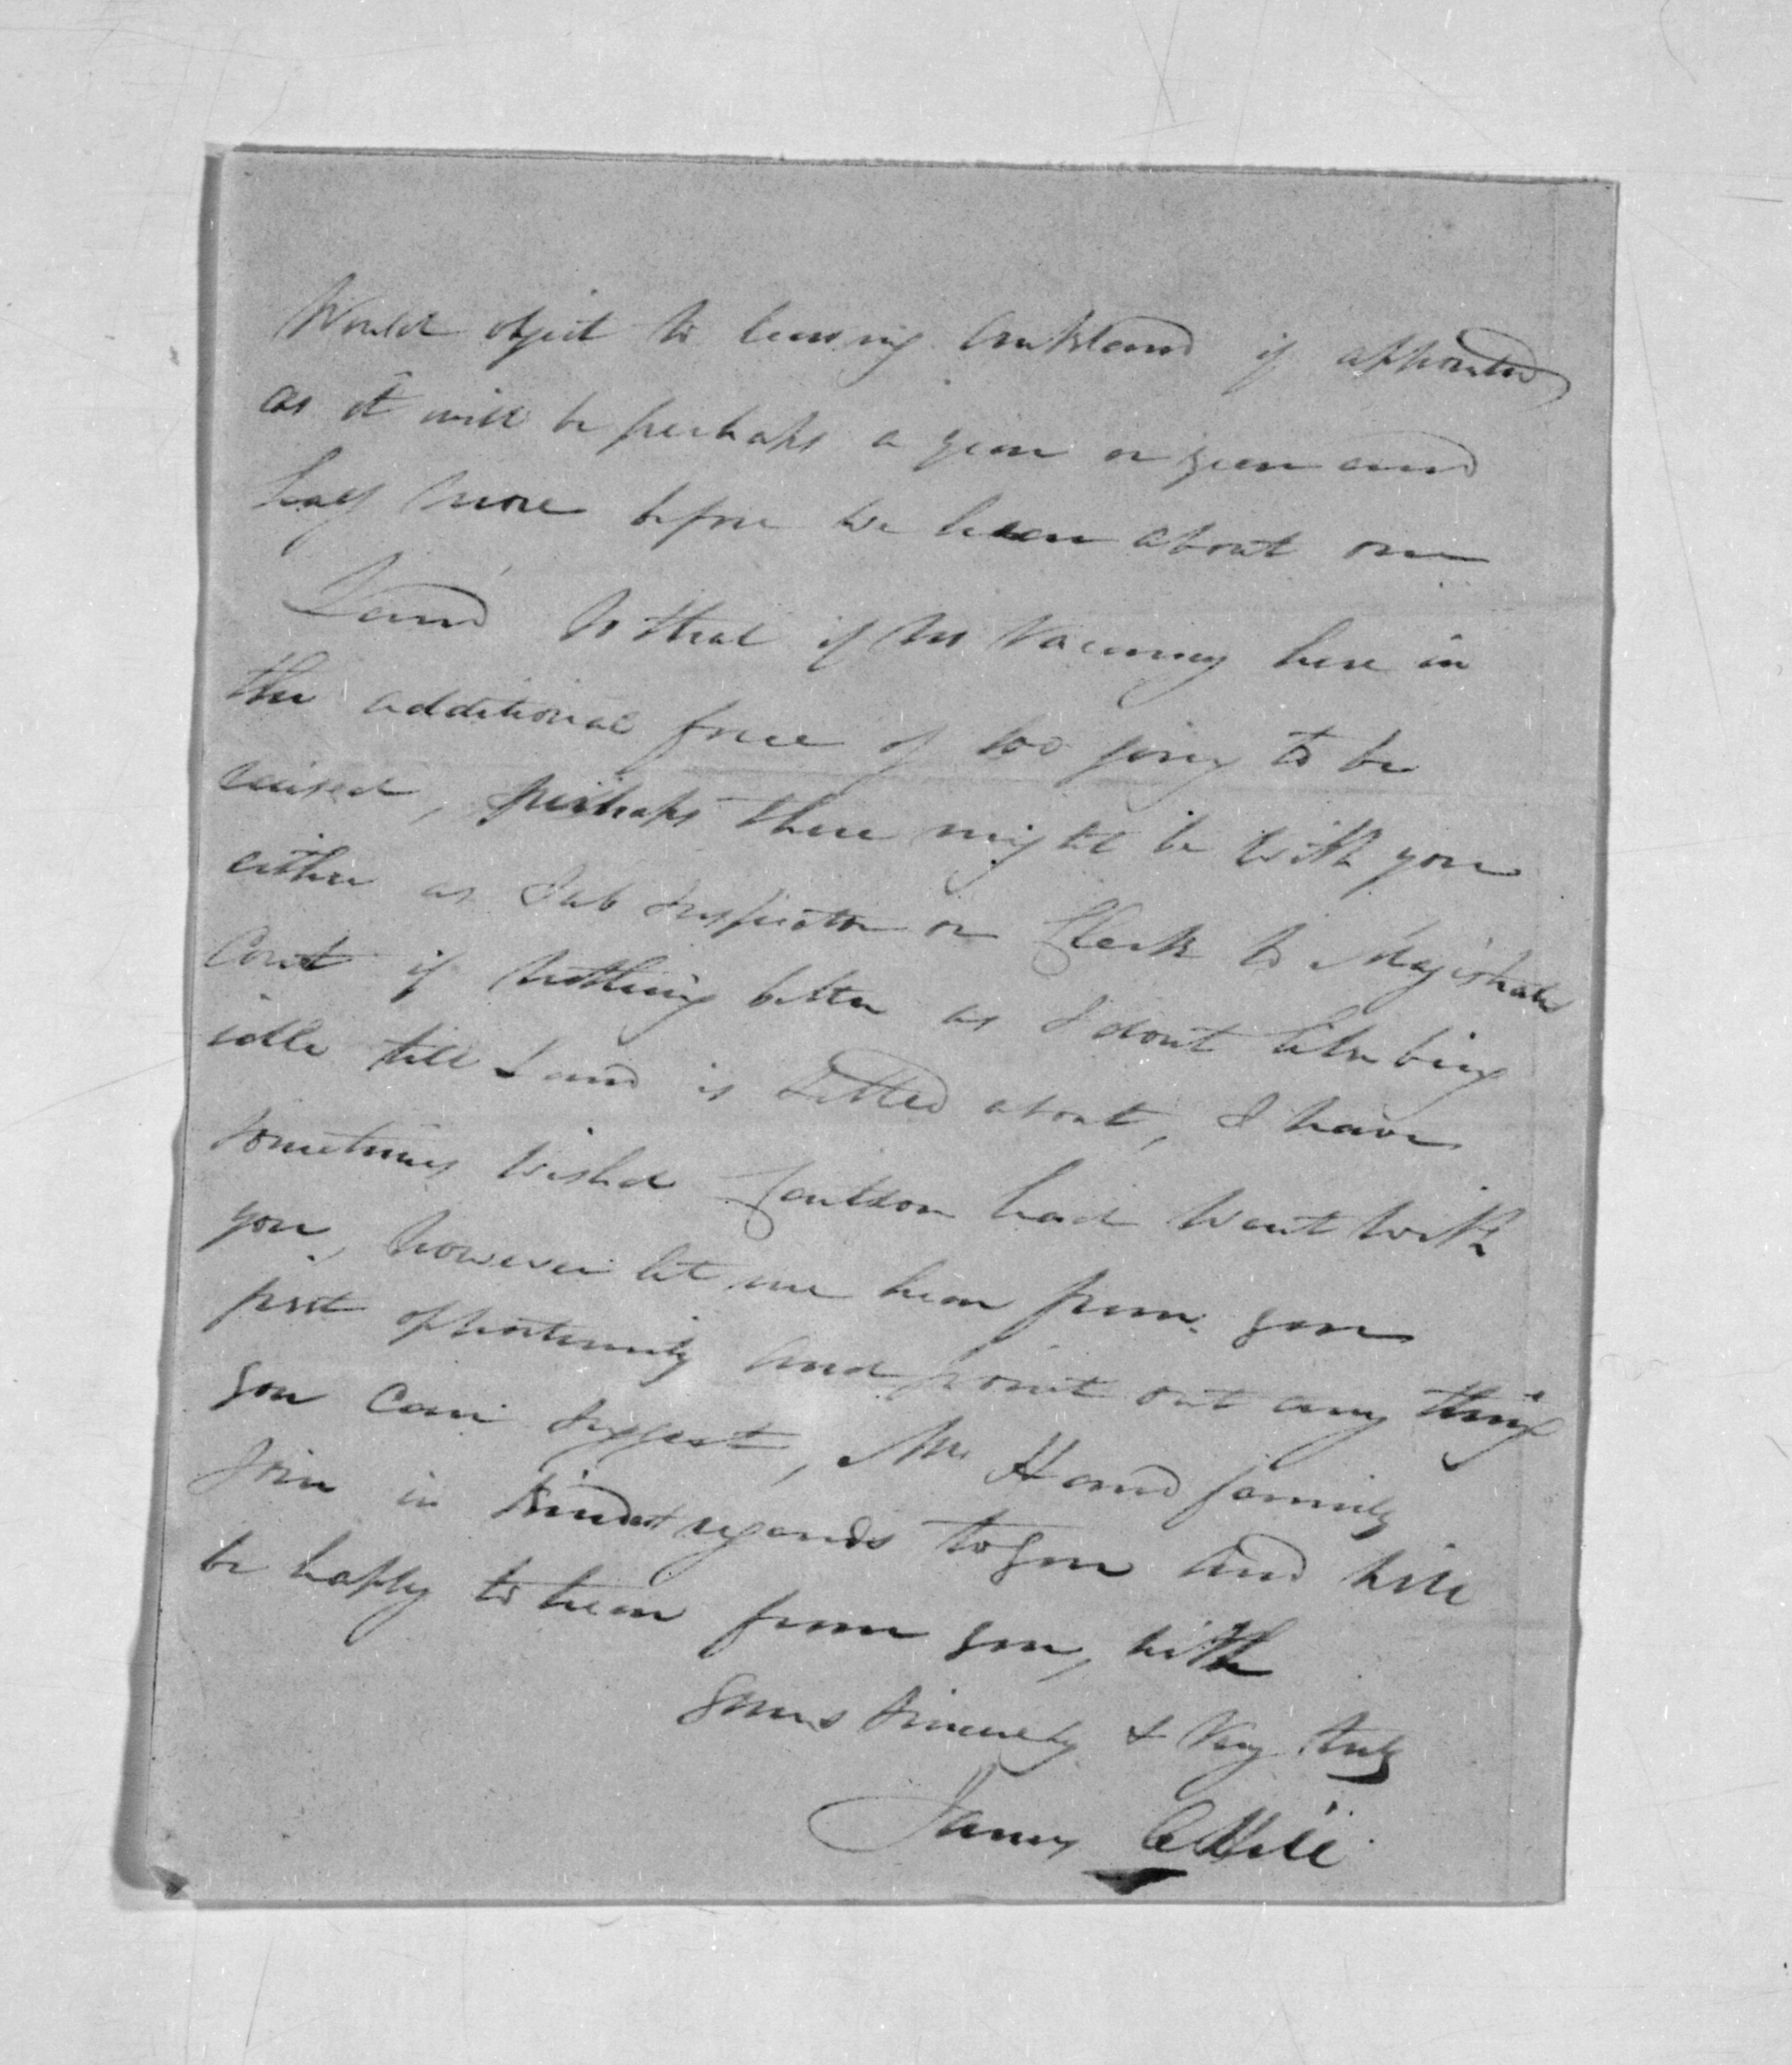 Would object to leaving Auckland if appointed
as it will be perhaps a year or year and
half more before we hear about our
Land so that if no Vacancy here in
the additional force of 100 going to be
raised, perhaps there might be with you
either as Sub Inspector or Clerk to Magistrates
Court if nothing better as I dont like being
idle till Land is settled about, I have
sometimes wished had went with
you, however let me hear from you
first opportunity and point out any thing
you can suggest, Mrs H and family
Join in kindest regards to you and will
be happy to hear from you, with
yours sincerely & Very truly
James Hill